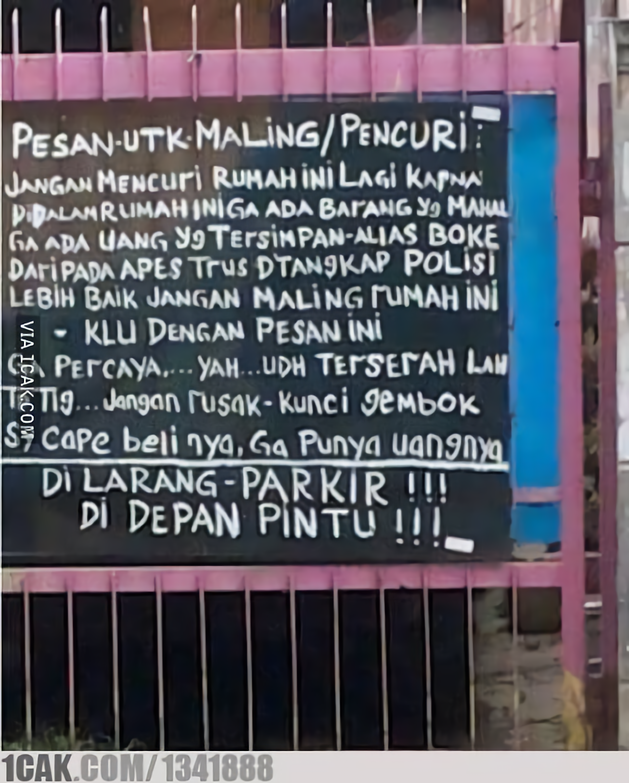 PESAN-UTK-MALING/PENCURI :
JANGAN MENCURI RUMAH INI LAGI KARNA
DIDALAM RUMAH INI GA ADA BARANG Yg MAHAL
GA ADA UANG Yg TERSIMPAN-ALIAS BOKE
DARIPADA APES TRUS DTANgKAP POLISI
LEBIH BAIK JANGAN MALING RUMAH INI
- KLU DENGAN PESAN INI
GA PERCAYA.... YAH...UDH TERSERAH LAH
...Jangan rusak-Kunci gembok
Cape beli nya, Ga Punya uangnya
Di LARANG-PARKIR !!!
Di DEPAN PINTU !!!
VIA 1CAK.COM
1CAK.COM/1341888